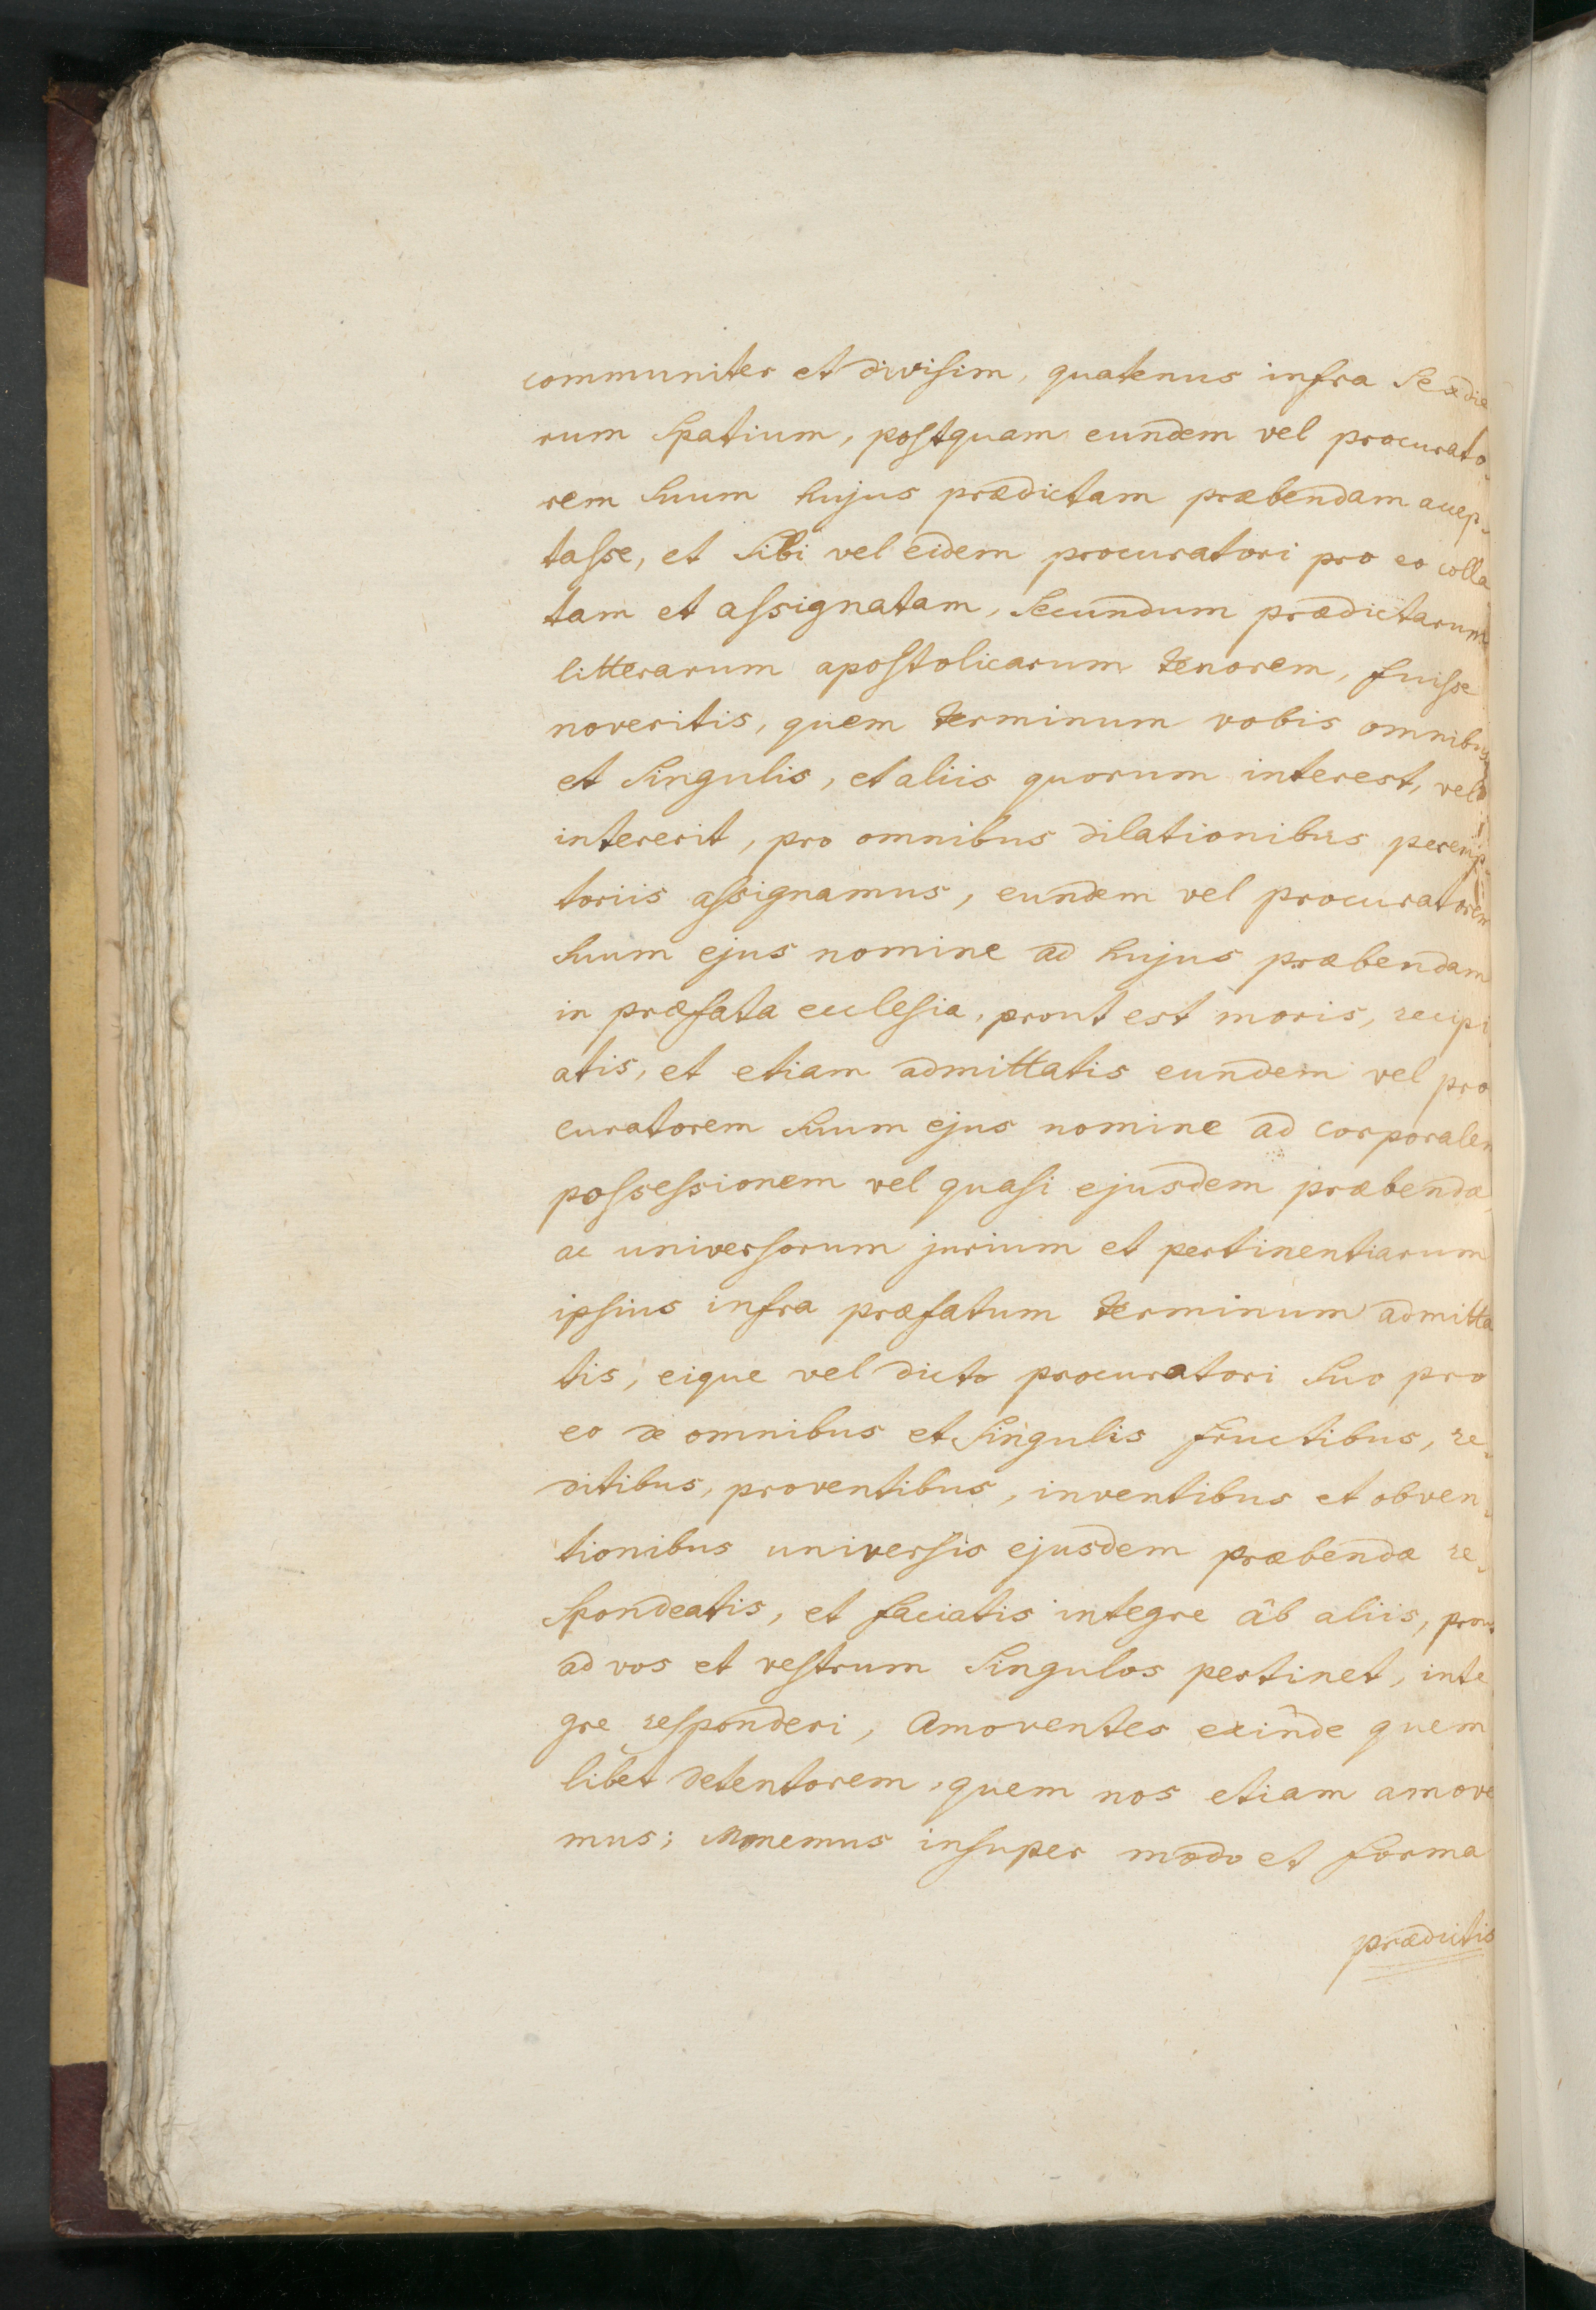 communiter et divisim, quatenus infra sex die
rum spatium, postquam eundem vel procurato-
rem suum hujus prædictam præbendam accep-
tasse, et sibi vel eidem procuratori pro eo colla
tam et assignatam, secundum prædictarum
litterarum apostolicarum tenorem, fuisse
noveritis, quem terminum vobis omnibus
et singulis, et aliis quorum interest, vel
intererit, pro omnibus dilationibus peremp-
toriis assignamus, eundem vel procuratorem
suum ejus nomine ad hujus præbendam
in præfata ecclesia, prout est moris, recipi
atis, et etiam admittatis eundem vel pro
curatorem suum ejus nomine ad corporalem
possessionem vel quasi ejusdem præbendæ,
ac universorum jurium et pertinentiarum
ipsius infra præfatum terminum admitta
tis, eique vel dicto procuratori suo pro
eo de omnibus et singulis fructibus, re-
ditibus, proventibus, inventibus et obven-
tionibus universis ejusdem præbendæ re-
spondeatis, et faciatis integre âb aliis, prout
ad vos et vestrum singulos pertinet, inte
gre responderi, Amoventes exinde quem
libet detentorem, quem nos etiam amove
mus; Monemus insuper modo et forma
prædictis